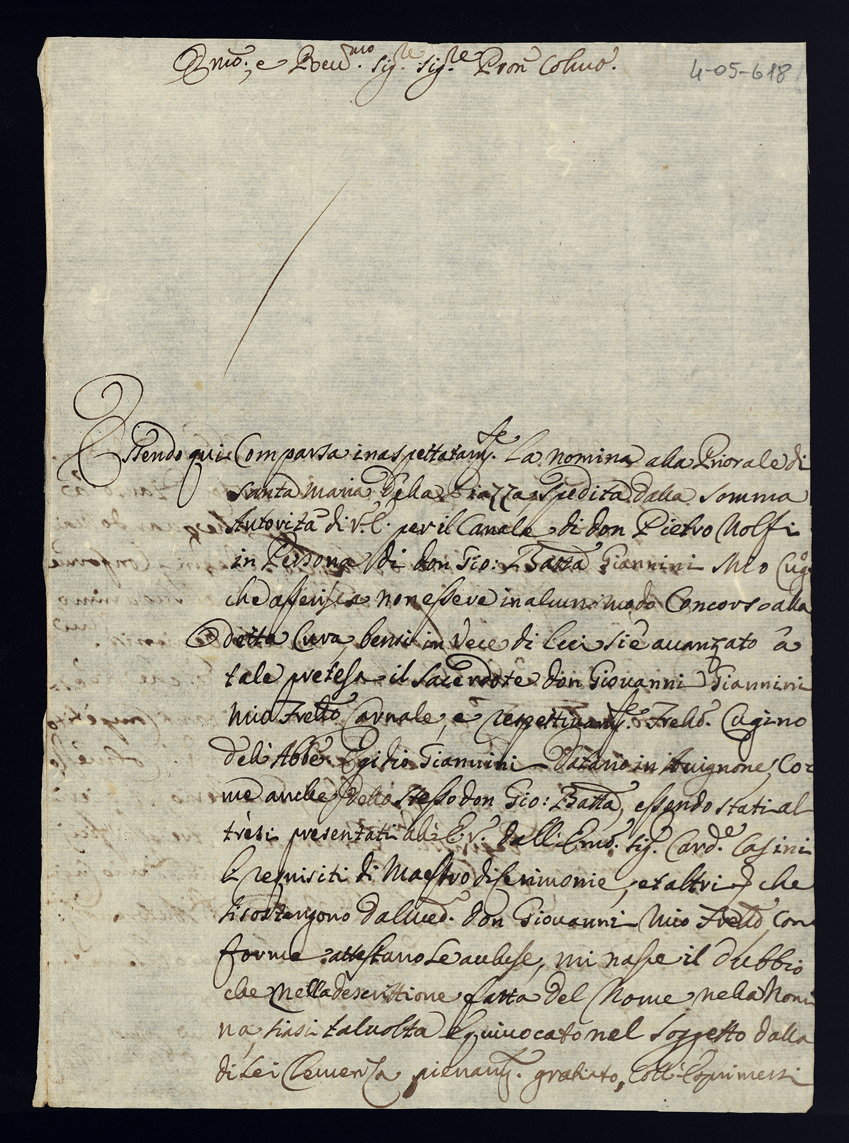 Emo:, e Reu:mo sig:re sig:re Pron Colmo:
4-05-618
Essendo qui Comparsa inaspettatam:te La nomina alla Priorale di
Santa Maria della Piazza spedita dalla somma
Autorità di V:E: per il Canale di don Pietro Nolfi
in Persona di don Gio: Batta Giannini Mio Cug:o
che asserisca non essere in alcun modo Concorso alla
detta Cura, bensì in Vece di Lui si è auanzato à
tale pretesa il sacerdote don Giovanni Giannini
Mio Frello: Carnale, e respettiuam:te Frello: Cugino
dell'Abbe: Egidio Giannini Datario in Auignone, Co
me anche dello stesso don Gio: Batta, essendo stati al
tresi presentati all'E:V: dall'Emo: sig: Card:e Casini
li requisiti di Maestro di Cerimonie, et altri che
si sostengono dal med:o don Giovanni Mio Frello, con
forme attestano Le anlesse, mi nasce il dubbio
che nella descrittione fatta del Nome nella Nomi
na, siasi taluolta equiuocato nel soggetto dalla
di Lei Clemenza pienam:te gratiato, coll'Esprimersi